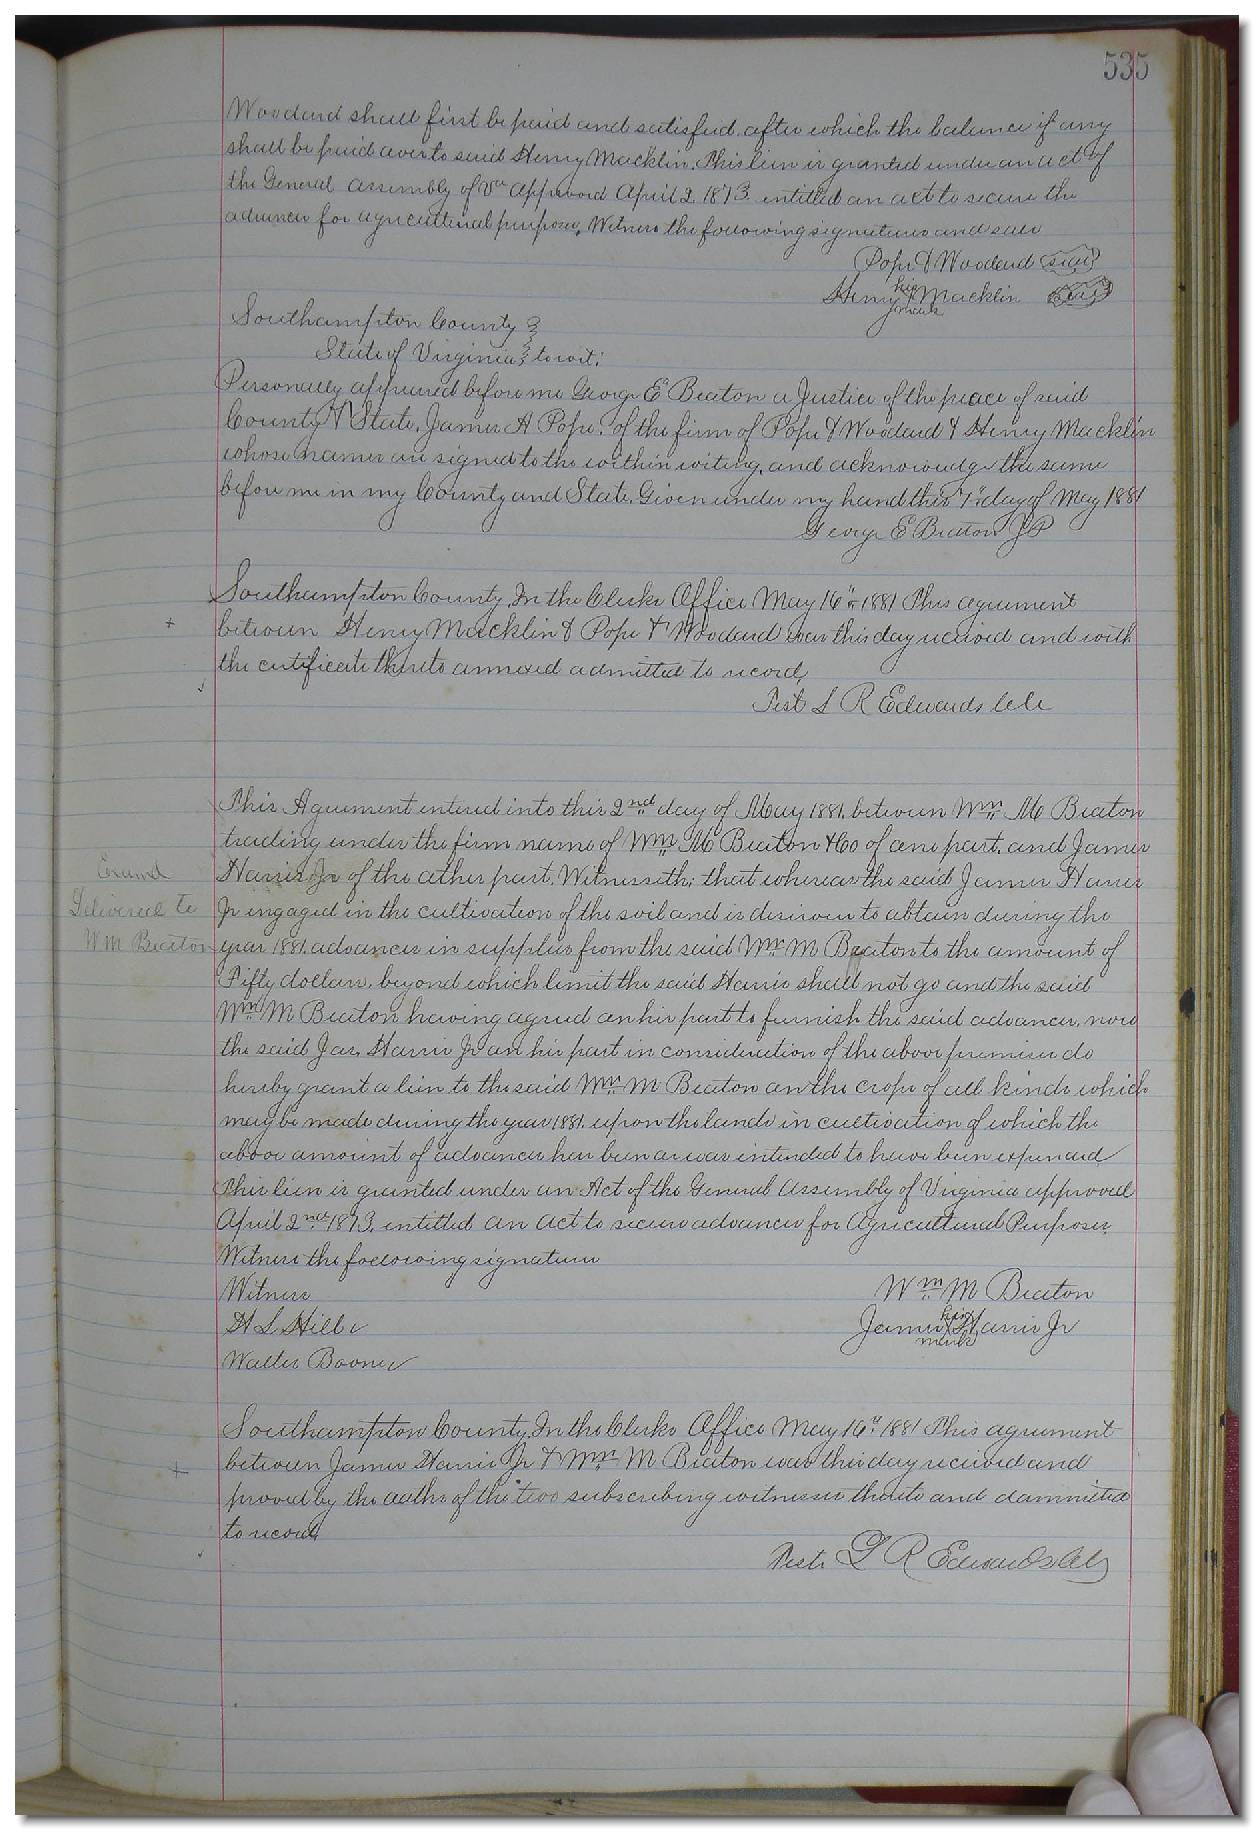 535
Woodard shall first be paid and satisfied, after which the balance if any
shall be paid over to said Henry Macklin, This lien is granted under an act of
the General Assembly of Va approved April 2 1873 entitled an act to secure the
advances for agricultural purposes, Witness the following signatures and seals
Pope & Woodard seal
Henry his Macklin seal
mark
Southampton County
State of Virginia to wit:
Personally appeared before me George E Beaton a Justice of the peace of said
County & State, James A Pope, of the firm of Pope & Woodard & Henry Macklin
whose names are signed to the within writing, and acknowledge the same
before me in my County and State, Given under my hand this day of May 1881
George E Beaton JP
Southampton County, In the Clerks Office May 16th 1881 This agreement
+
between Henry Macklin & Pope & Woodard was this day received and with
the certificate thereto annexed admitted to record,
Test L R Edwards Clk
This Agreement entered into this 2nd day of May 1881, between Wm M Beaton
trading under the firm name of Wm M Beaton & Co of one part, and James
Examd
Harris Jr of the other part, Witnesseth; that whereas the said James Harris
Delivered to
Jr engaged in the cultivation of the soil and is desirous to obtain during the
WM Beaton
year 1881, advances in supplies from the said Wm M Beaton to the amount of
Fifty dollars, beyond which limit the said Harris shall not go and the said
Wm M Beaton having agreed on his part to furnish the said advances, now
the said Jas, Harris Jr on his part in consideration of the above premises do
hereby grant a lien to the said Wm M Beaton on the crops of all kinds which
may be made during the year 1881, upon the lands in cultivation of which the
above amount of advances has been or was intended to have been expended
This lien is granted under an Act of the General Assembly of Virginia approved
April 2nd 1873, entitled an act to secure advances for Agricultural Purposes,
Witness the following signatures
Witness
Wm M Beaton
H L Hill
James his Harris Jr
mark
Walter Boone
Southampton County, In the Clerks Office May 16th 1881 This agreement
+
between James Harris Jr & Wm M Beaton was this day received and
proved by the oaths of the two subscribing witnesses thereto and dammited
to record
Test L R Edwards Clk